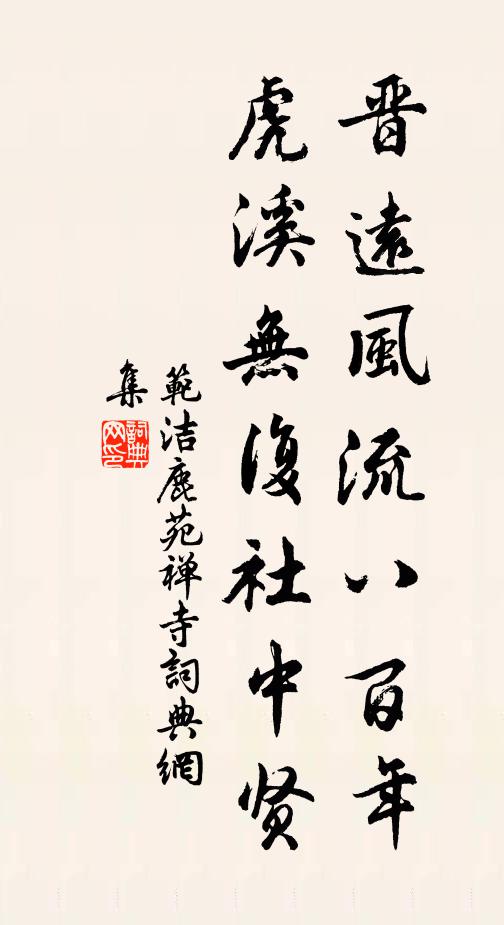 晋遠風流八百年
虎溪無復社中贤
範洁鹿苑禅寺詞典網
集
詞典
网印